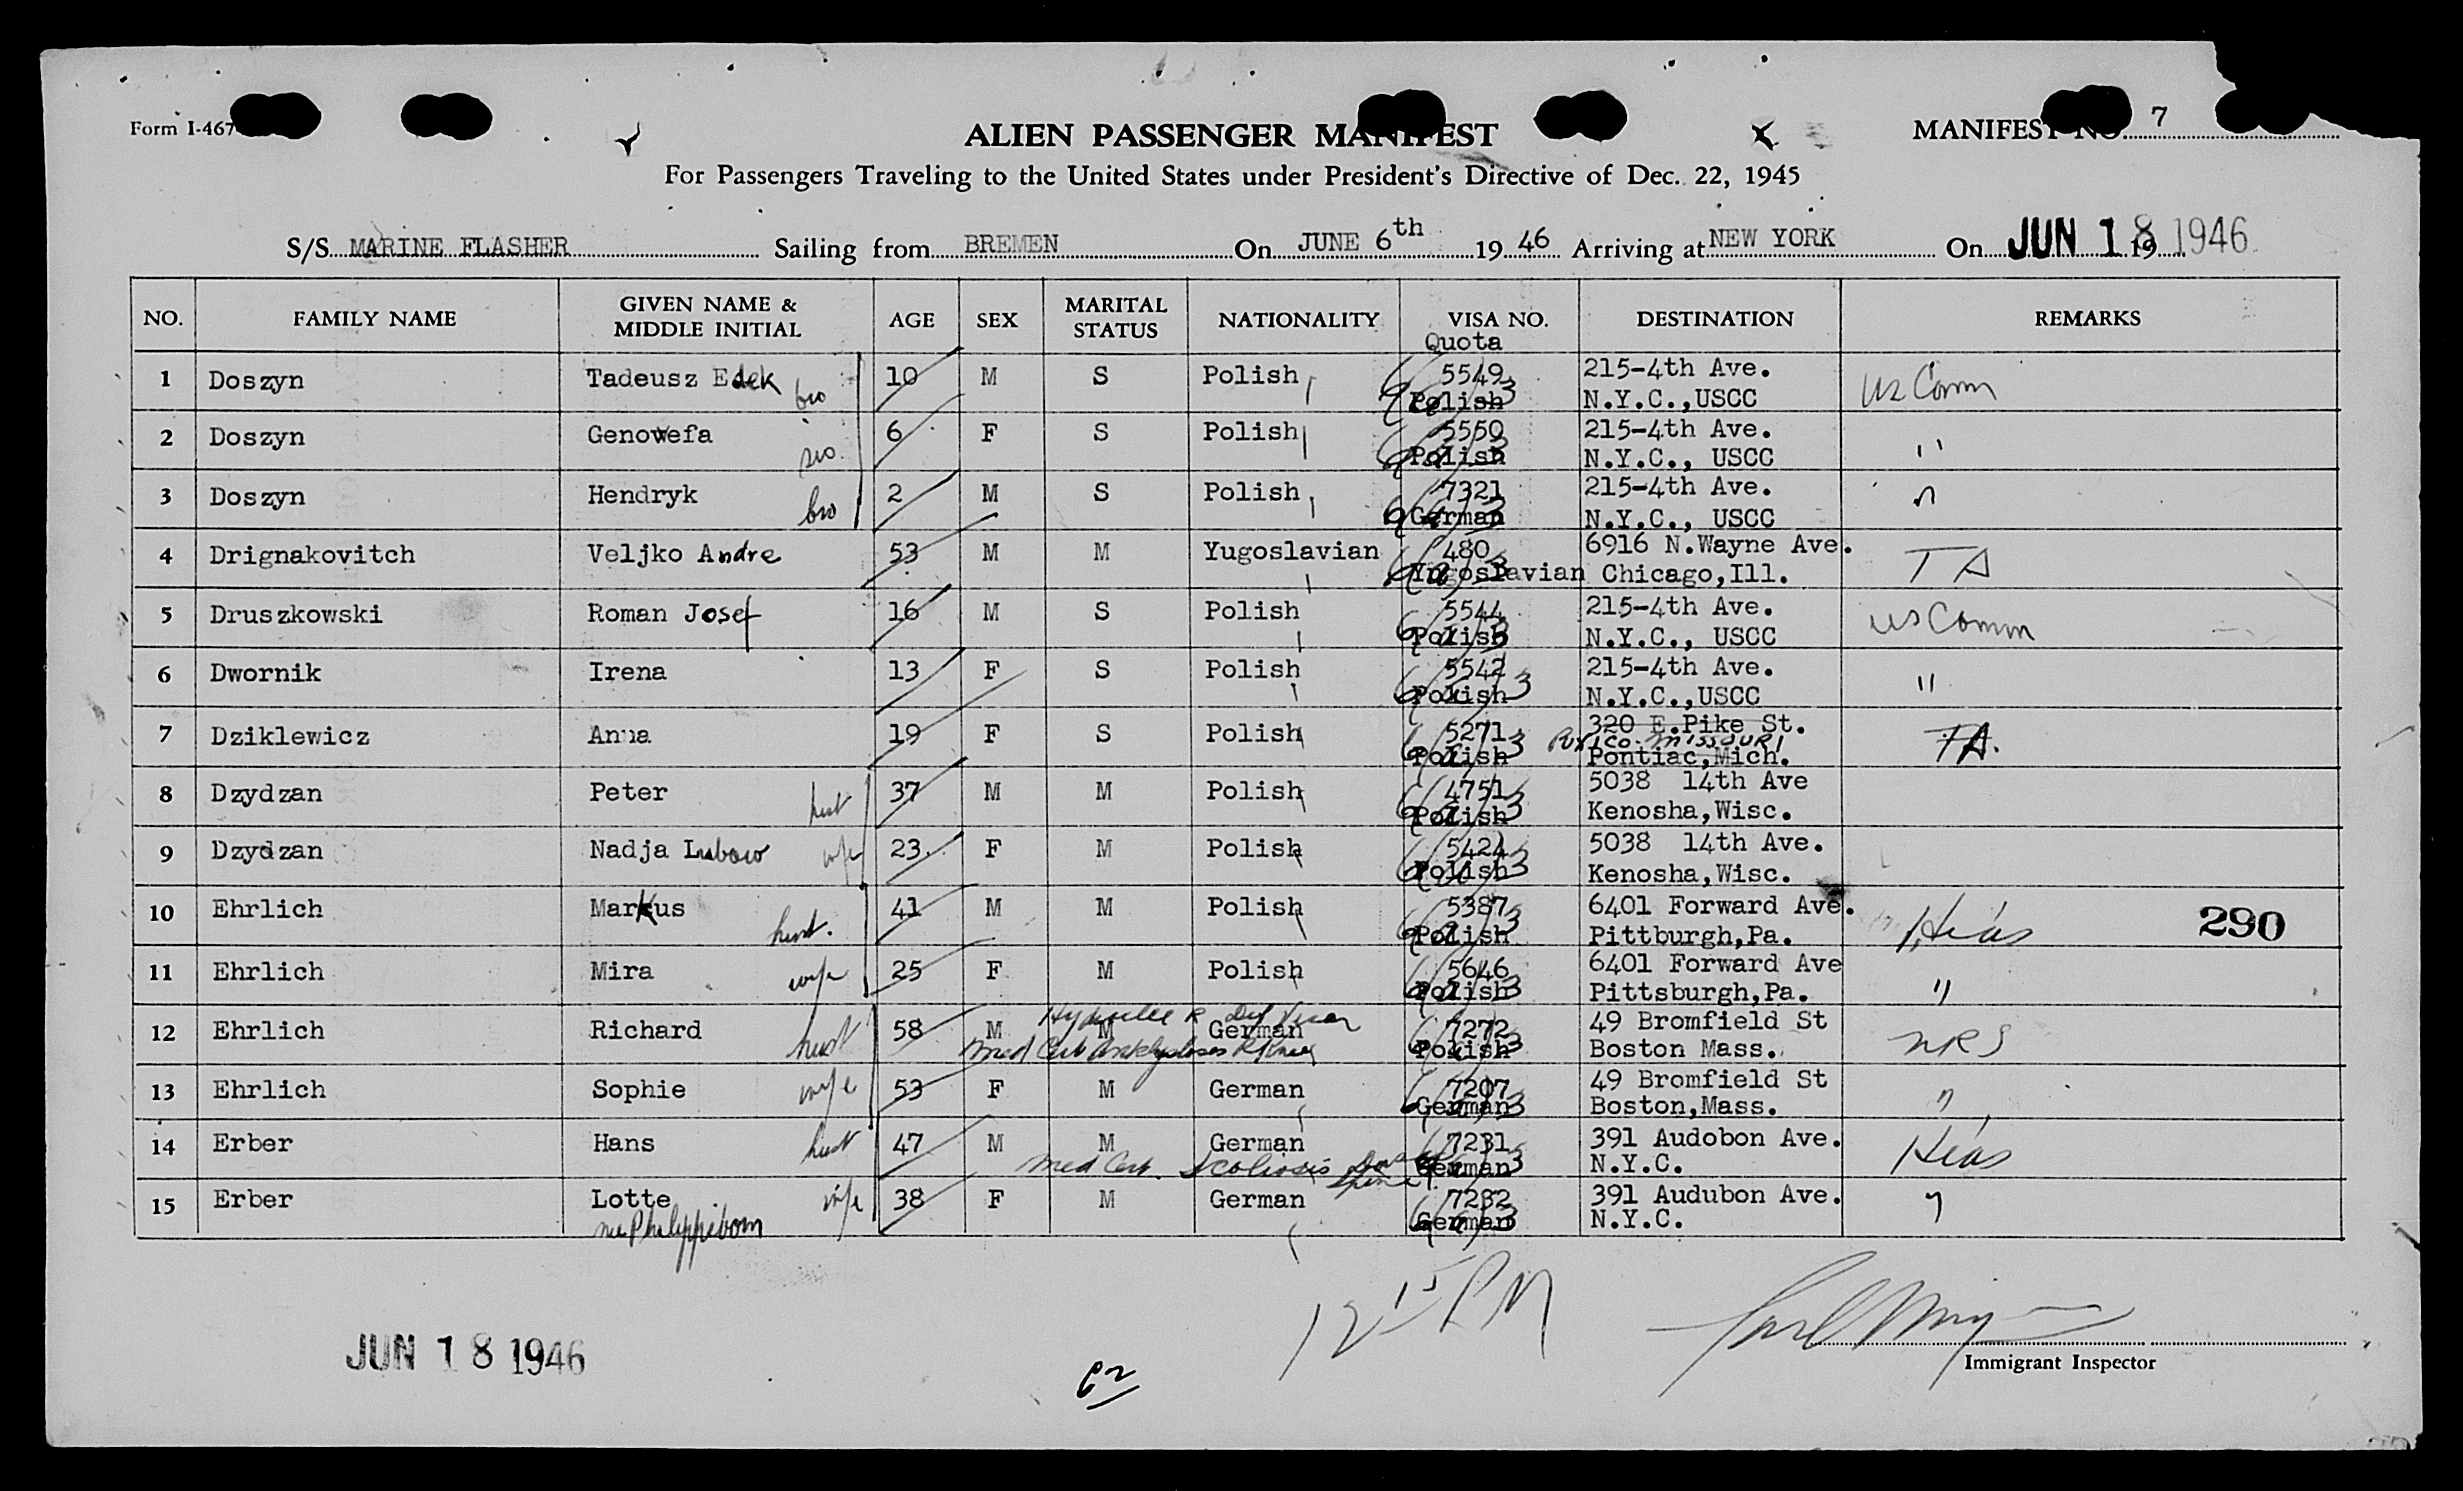 Form I-467
ALIEN PASSENGER MANIFEST
MANIFEST NO. 7
For Passengers Traveling to the United States under President's Directive of Dec. 22, 1945
S/S MARINE FLASHER Sailing from BREMEN On JUNE 6th 19 46 Arriving at NEW YORK On JUN 18 1946 19
NO. FAMILY NAME GIVEN NAME & MIDDLE INITIAL AGE SEX MARITAL STATUS NATIONALITY VISA NO. DESTINATION REMARKS
Quota
1 Doszyn Tadeusz Edek bro 10 M S Polish 5549 215-4th Ave. US Comm
Polish N.Y.C.,USCC
2 Doszyn Genowefa sis 6 F S Polish 5550 215-4th Ave. "
Polish N.Y.C., USCC
3 Doszyn Hendryk bro 2 M S Polish 7321 215-4th Ave. "
German N.Y.C., USCC
4 Drignakovitch Veljko Andre 53 M M Yugoslavian 480 6916 N.Wayne Ave. TA
Yugoslavian Chicago,Ill.
5 Druszkowski Roman Josef 16 M S Polish 5544 215-4th Ave. US Comm
Polish N.Y.C., USCC
6 Dwornik Irena 13 F S Polish 5542 215-4th Ave. "
Polish N.Y.C.,USCC
7 Dziklewicz Anna 19 F S Polish 5271 320 E.Pike St. TA.
Puxico-Missouri
Polish Pontiac,Mich.
8 Dzydzan Peter hust 37 M M Polish 4751 5038 14th Ave
Polish Kenosha,Wisc.
9 Dzydzan Nadja Lubow wife 23 F M Polish 5424 5038 14th Ave.
Polish Kenosha,Wisc.
10 Ehrlich Markus hust. 41 M M Polish 5387 6401 Forward Ave. Hias 290
Polish Pittburgh,Pa.
11 Ehrlich Mira wife 25 F M Polish 5646 6401 Forward Ave "
Polish Pittsburgh,Pa.
12 Ehrlich Richard hust 58 M M German 7272 49 Bromfield St NRS
Med Cert R Knee Polish Boston Mass.
13 Ehrlich Sophie wife 53 F M German 7207 49 Bromfield St "
German Boston,Mass.
14 Erber Hans hust 47 M M German 7231 391 Audobon Ave. Hias
Med Cert. Scoliosis Spine German N.Y.C.
15 Erber Lotte wife 38 F M German 7232 391 Audubon Ave. "
nee Philippsborn German N.Y.C.
12 15 PM
JUN 18 1946
Immigrant Inspector